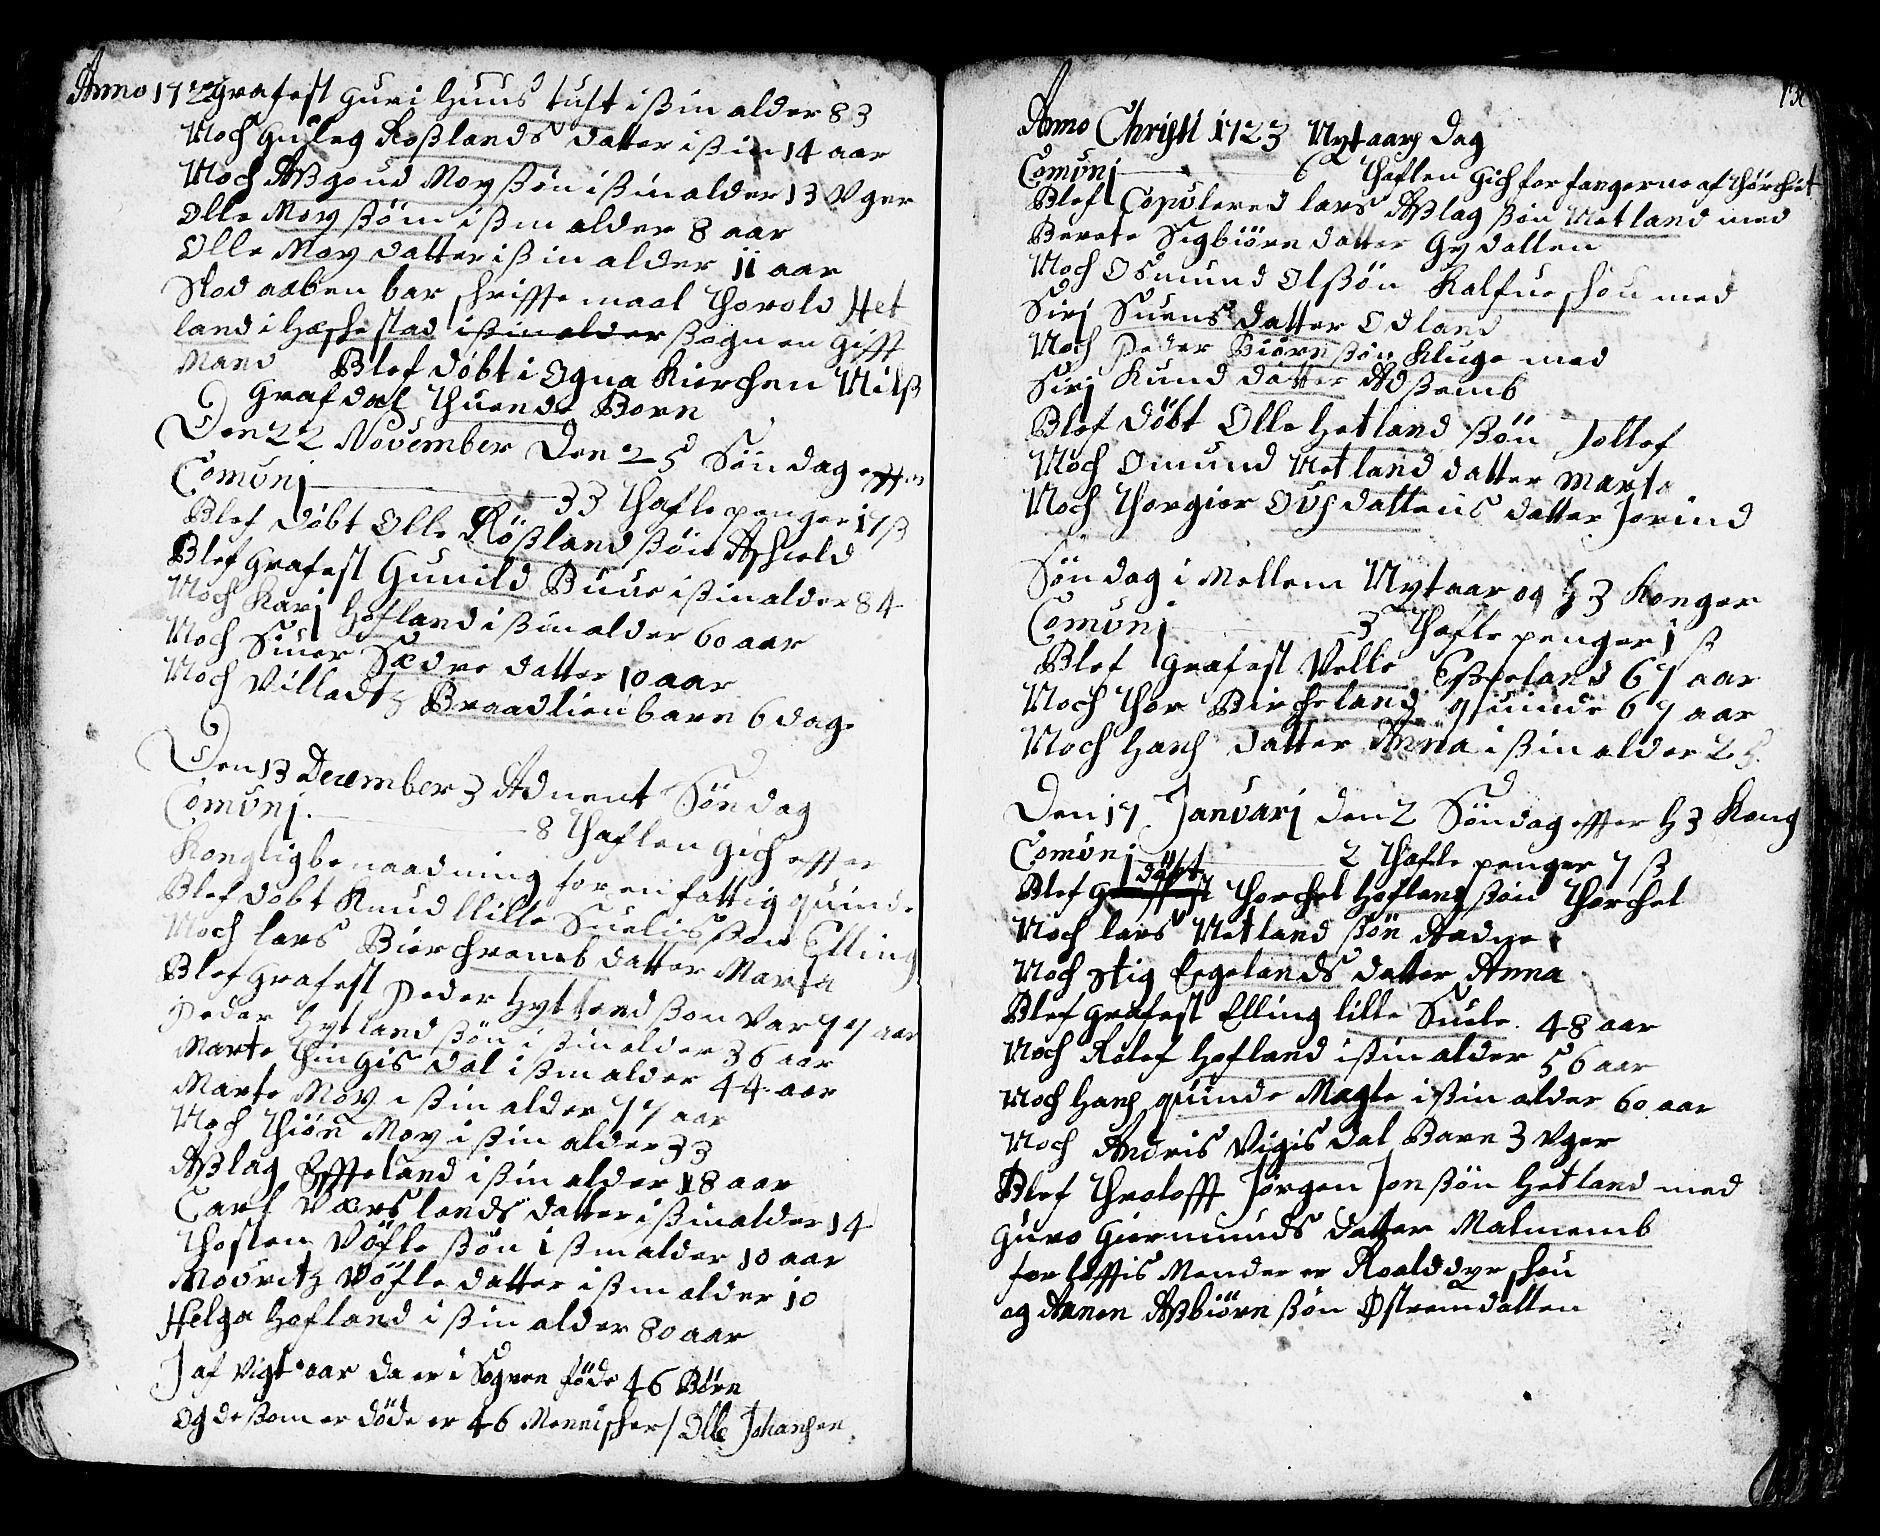 Anno 1722 Grafest Guri Huus tuft i ßin alder 83
Noch Gusleg Roßlands datter i ßin 14 aar
Noch Aßgoud Moy ßön i ßin alder 13 Vger
Olle Moy ßöni ißin alder 8 aar
Olle Moy datter ißin alder 11 aar
Stod aaben bar skrifftemaal Thorold Het
land i Heskestad ißin alder ßognen gifft
Mand Blef döbt i Ogna Kierchen Nilß
Grafdal thuende Born
Den 22 November Den 25 Söndag effter
Comunj 33 Thafle penger 17 ß
Blef döbt Olle Rößland ßön Aschield
Blef Grafest Gunild Buue i ßin alder 84
Noch Karj Hofland i ßin alder 60 aar
Noch Siuer Sædre datter 10 aar
Noch Villadtz Braadlien barn 6 dage
Den 13 December 3 Aduent Söndag
Comunj 8 Thaflen gich effter
Kongligbenaadning for en fattig quinde
Blef döbt Knud llille Suelis ßön Elling
Noch lars Bierchremb datter Marta
Blef Grafest Peder Hytland ßom var 77 aar
Peder Hytland ßön i ßin alder 36 aar
Marte Thingis dal i ßin alder 44 aar
Marte Moy i ßin alder 77 aar
Noch Thiön Moy i ßin alder 33
Aßlag Effteland i ßin alder 18 aar
Carl Værslands datter i ßin alder 14
Thosten Vöfle ßön i ßin alder 10 aar
Mouritz Vöfle datter i ßin alder 10
Helga Hofland i ßin alder 80 aar
J af vigt aar da er i Sognen föde 46 Börn
Og de ßom er döde er 46 Mennisker / Olle Johansen
Anno Christi 1723 Nytaars Dag
Comunj 6 Thaflen Gich for fangerne af thörchiet
Blef Copulered lars Aßlag ßön Netland med
Berete Sigbiörn datter Gydallen
Noch Osmund Olßön Kalfueschou med
Sirj Suens datter Odland
Noch Peder Biörn ßön Kluge med
Sirj Kund datter Adßemb
Blef döbt Olle Hetland ßön Jollef
Noch Omund Netland datter Marta
Noch Thorgier Ous dattens datter Jorind
Söndag i Mellem Nytaar og H 3 Konger
Comunj 3 Thafle penger 1 ß
Blef Grafest Velle Eßeland 67 aar
Noch Thor Bircheland quinde 67 aar
Noch Hans datter Anna i ßin alder 25
Den 17 Januarj den 2 Söndag effter H 3 Kong
Comunj 2 Thafle penger 7 ß
döbt
Blef Thorchel Hofland ßön Thorchel
Noch lars Netland ßön Aadne
Noch Stig Eegelands datter Anna
Blef Grafest Elling lille Suele 48 aar
Noch Rolef Hofland i ßin alder 56 aar
Noch Hans quinde Magle i ßin alder 60 aar
Noch Andris Vigis dal Barn 3 Vger
Blef Throlofft Jörgen Jon ßön Hetland med
Guro Giermunds datter Malmemb
forlöfftis Mender er Roalddyrschou
og Annen Aßbiörn ßön Östremdallen